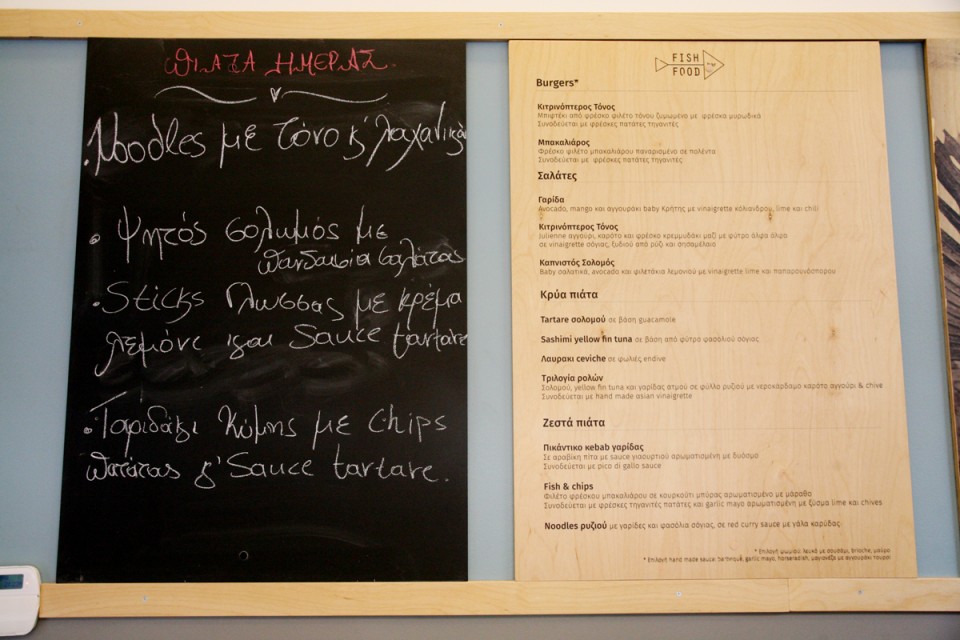 ΠΙΑΤΑ ΗΜΕΡΑΣ.
. Noodles με τόνο κ' λαχανικά
• Ψητός σολωμός με
πανδαισία σαλάτας
• Sticks γλώσσας με κρέμα
λεμόνι και Sauce tartare
• Γαριδάκι Κύμης με chips
πατάτας κ' Sauce tartare.
FISH
FOOD
Burgers*
Κιτρινόπτερος Τόνος
Μπιφτέκι από φρέσκο φιλέτο τόνου ζυμωμένο με φρέσκα μυρωδικά
Συνοδεύεται με φρέσκες πατάτες τηγανιτές
Μπακαλιάρος
Φρέσκο φιλέτο μπακαλιάρου παναρισμένο σε πολέντα
Συνοδεύεται με φρέσκες πατάτες τηγανιτές
Σαλάτες
Γαρίδα
Avocado, mango και αγγουράκι baby Κρήτης με vinaigrette κόλιανδρου, lime και chili
Κιτρινόπτερος Τόνος
Julienne αγγούρι, καρότο και φρέσκο κρεμμυδάκι μαζί με φύτρο άλφα άλφα
σε vinaigrette σόγιας, ξυδιού από ρύζι και σησαμέλαιο
Καπνιστός Σολομός
Baby σαλατικά, avocado και φιλετάκια λεμονιού με vinaigrette lime και παπαρουνόσπορου
Κρύα πιάτα
Tartare σολομού σε βάση guacamole
Sashimi yellow fin tuna σε βάση από φύτρο φασολιού σόγιας
Λαυρακι ceviche σε φωλιές endive
Τριλογία ρολών
Σολομού, yellow fin tuna και γαρίδας ατμού σε φύλλο ρυζιού με νεροκάρδαμο καρότο αγγούρι & chive
Συνοδεύεται με hand made asian vinaigrette
Ζεστά πιάτα
Πικάντικο kebab γαρίδας
Σε αραβική πίτα με sauce γιαουρτιού αρωματισμένη με δυόσμο
Συνοδεύεται με pico di gallo sauce
Fish & chips
Φιλέτο φρέσκου μπακαλιάρου σε κουρκούτι μπύρας αρωματισμένο με μάραθο
Συνοδεύεται με φρέσκες τηγανιτές πατάτες και garlic mayo αρωματισμένη με ξύσμα lime και chives
Noodles ρυζιού με γαρίδες και φασόλια σόγιας, σε red curry sauce με γάλα καρύδας
* Επιλογή ψωμιού: λευκό με σουσάμι, brioche, μαύρο
* Επιλογή hand made sauce: barbeque, garlic mayo, horseradish, μαγιονέζα με αγγουράκι τουρσί